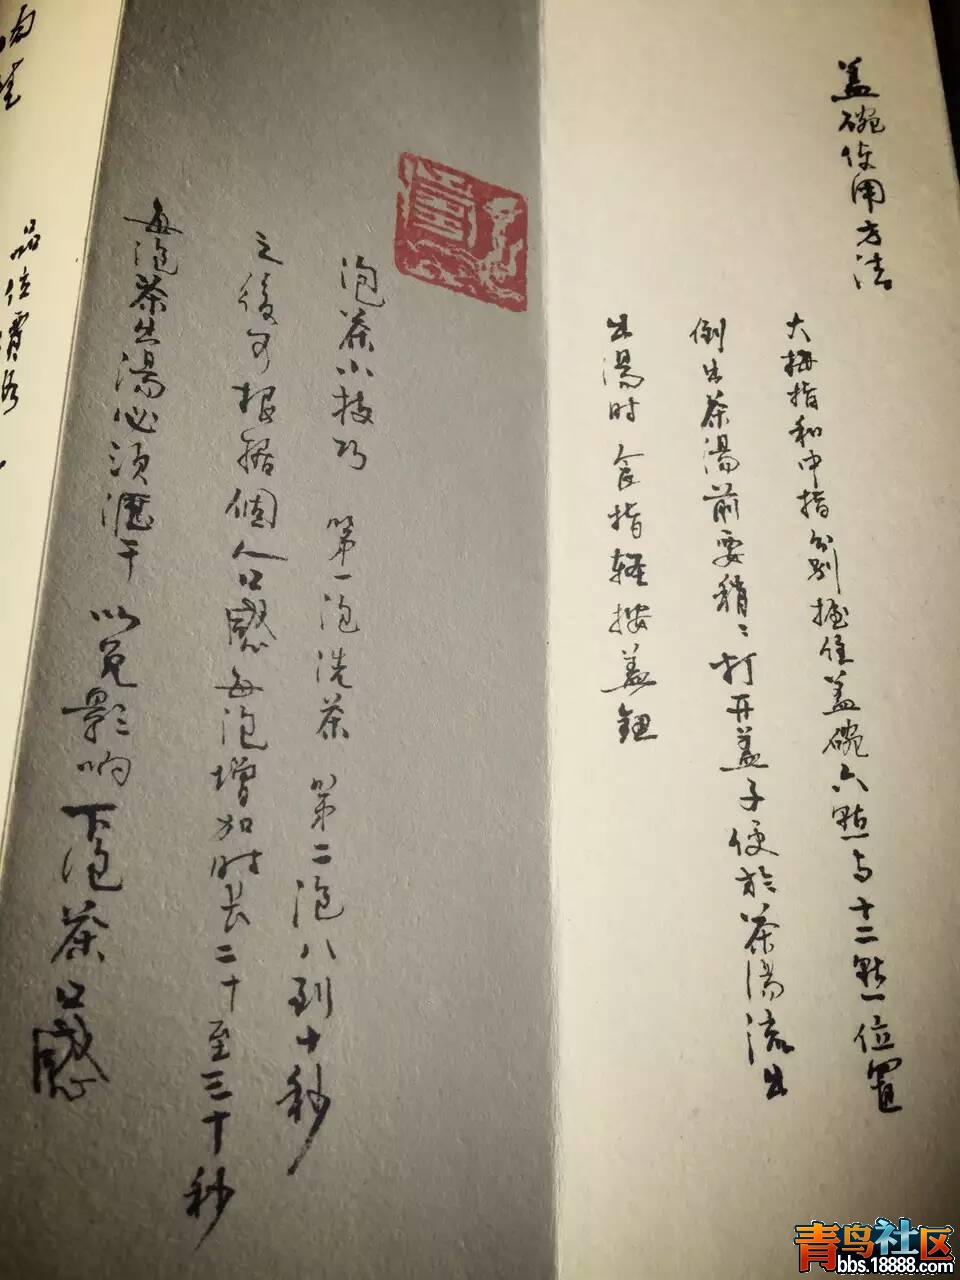 盖碗使用方法
大拇指和中指分别握住盖碗六點与十二點位置
倒出茶湯前要稍々打开盖子便於茶湯流出
出湯时 食指轻按盖鈕
泡茶小技巧 第一泡洗茶 第二泡八到十秒
之後可根据個人口感每泡增加时长二十至三十秒
每泡茶出湯必须瀝干 以免影响下泡茶口感
品位
青鸟社区
bbs.18888.com